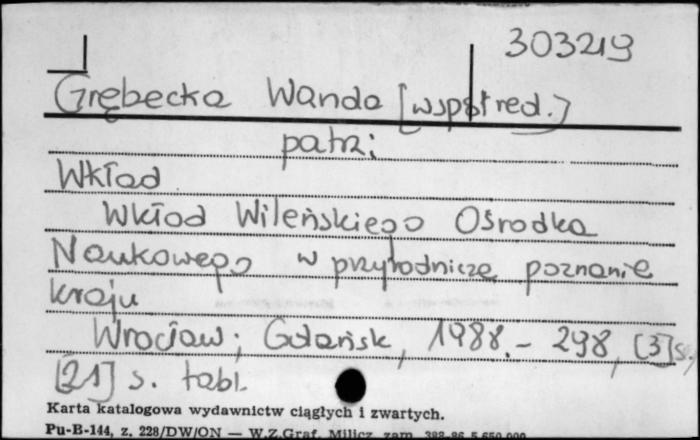 303219
Grębecka Wanda [współred.]
patrz:
Wkład
Wkład Wileńskiego Ośrodka
Naukowego w przyrodnicze poznanie
kraju
Wrocław; Gdańsk, 1988. - 298, [3] s.,
[21] s. tabl.
Karta katalogowa wydawnictw ciągłych i zwartych.
Pu-B-144, z. 228/DW/ON — W.Z.Graf. Milicz zam. 388-86 5.650.000